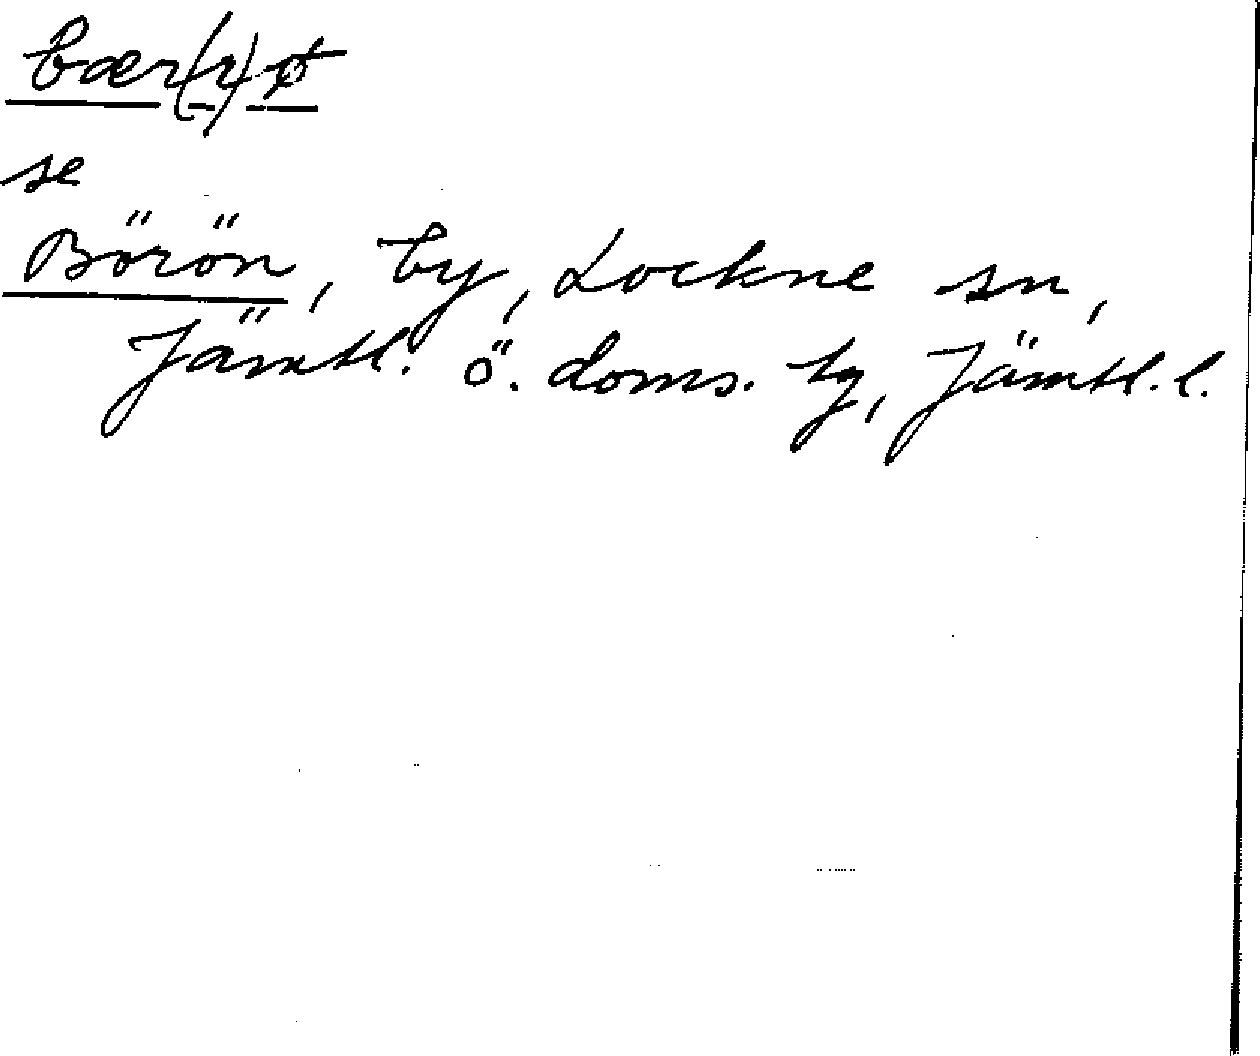 bær(r)ø
se
Börön, by, Lockne sn,
Jämtl. ö. doms. tg, Jämtl. l.